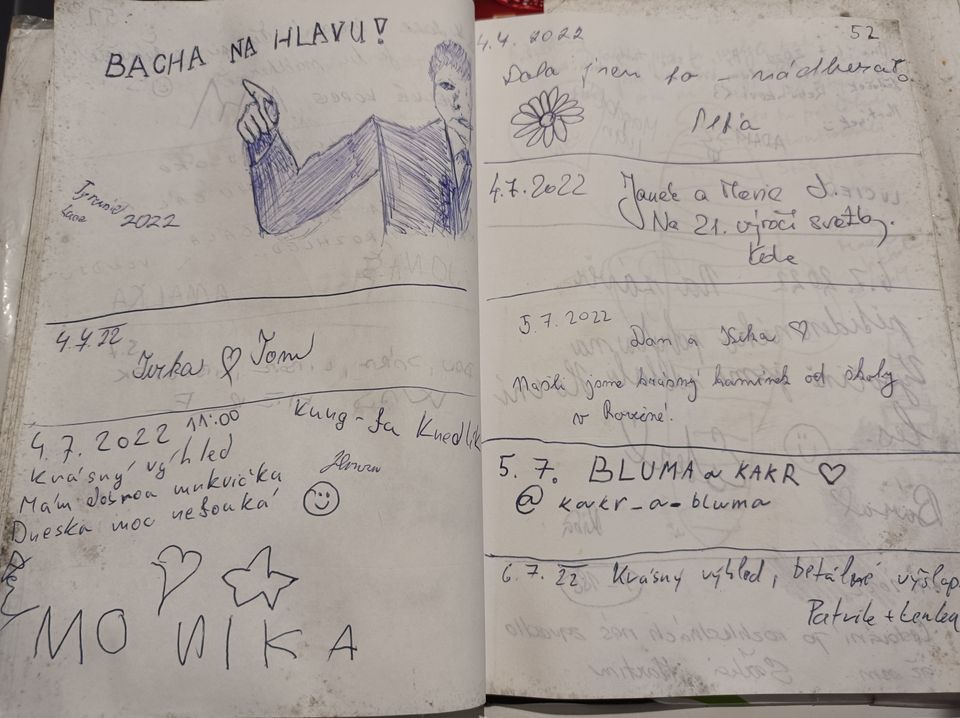 BACHA NA HLAVU!
2022
4.4.22
Jirka Tom
4.7.2022 11:00
Kung-fu Knedlík
Krásný výhled
Mám dobrou mrkvičku
Dneska moc nefouká
MONIKA
52
4.4.2022
Dala jsem to - nádhera
4.7.2022
a Marie J.
Na 21. výročí svatby.
5.7.2022
Dan a Kika
Našli jsme krásný kamínek od školy
v
5.7. BLUMA a KAKR
@ kakr_a-bluma
6.7.22 Krásný výhled, výšlap
Patrik + Lenka